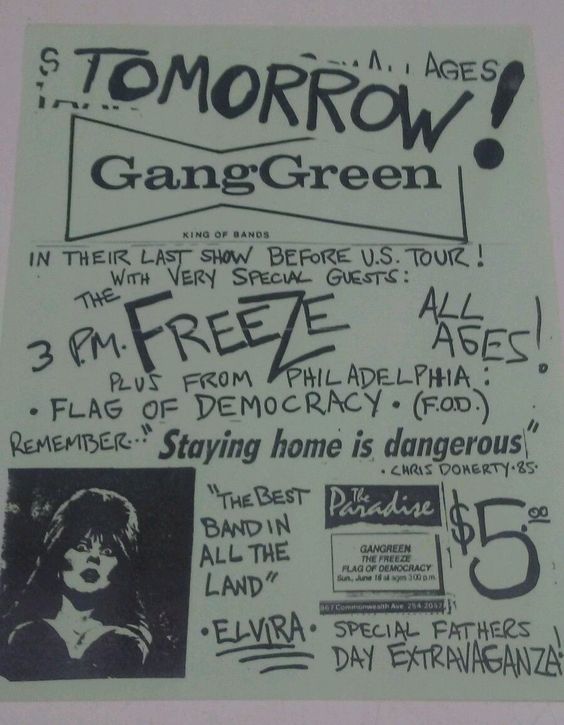 TOMORROW!
ALL AGES
GangGreen
KING OF BANDS
IN THEIR LAST SHOW BEFORE U.S. TOUR!
WITH VERY SPECIAL GUESTS:
THE FREEZE
3 P.M.
ALL AGES!
PLUS FROM PHILADELPHIA:
• FLAG OF DEMOCRACY • (F.O.D.)
REMEMBER... "Staying home is dangerous"
• CHRIS DOHERTY • 85 •
"THE BEST
BAND IN
ALL THE
LAND"
• ELVIRA •
The Paradise
GANGREEN
THE FREEZE
FLAG OF DEMOCRACY
Sun., June 16 all ages 3:00 p.m.
967 Commonwealth Ave. 254-2052
$5.00
SPECIAL FATHERS
DAY EXTRAVAGANZA!